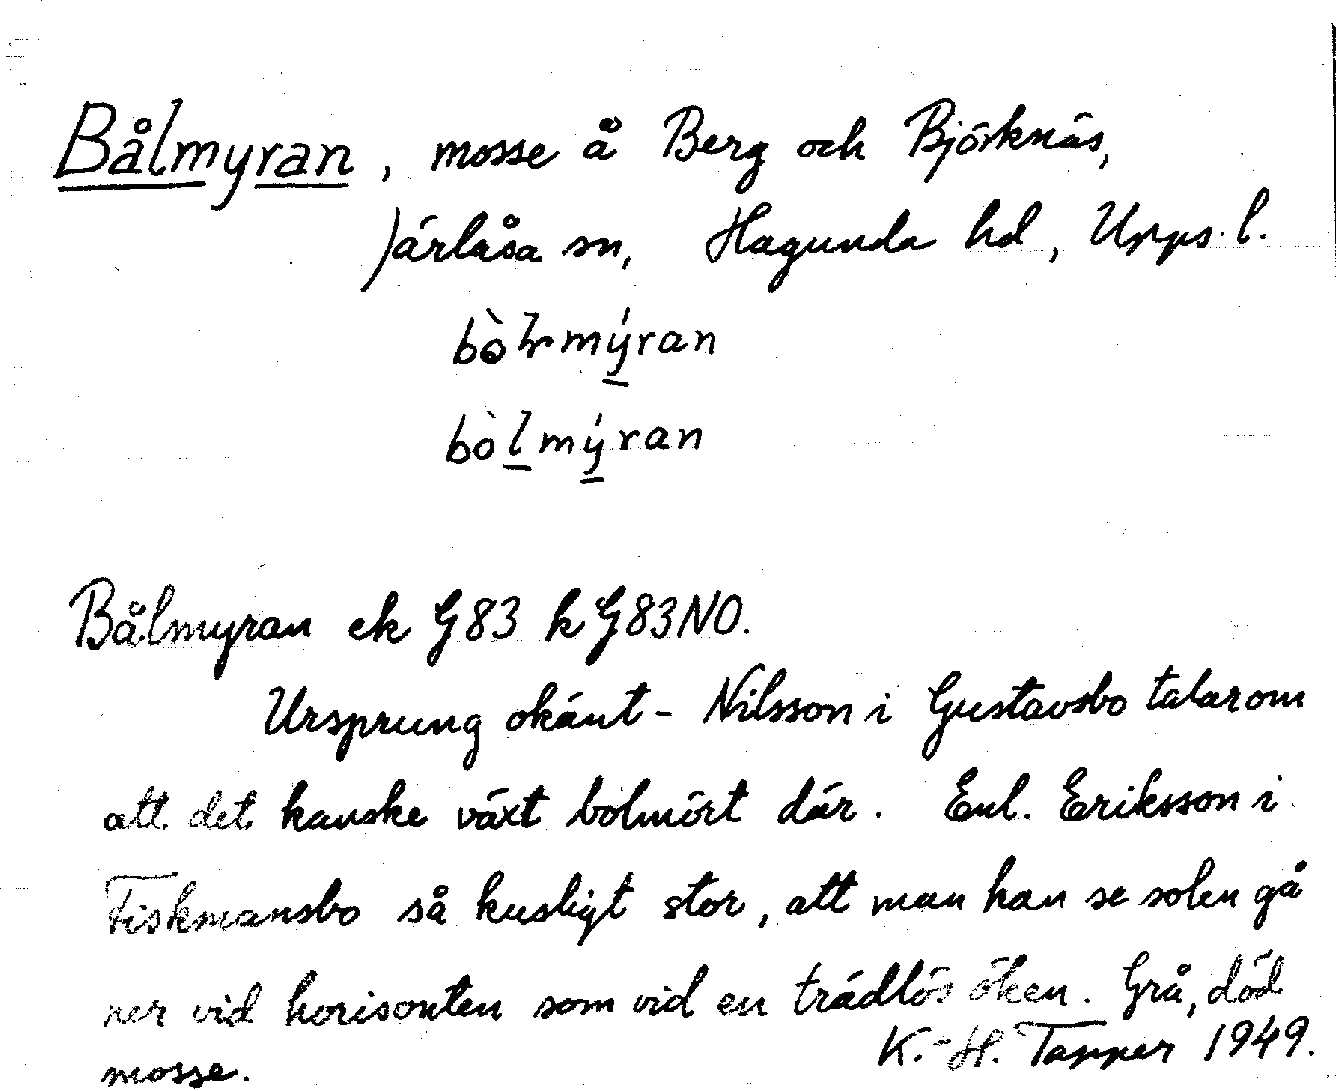 Bålmyran, mosse å Berg och Björknäs,
Järlåsa sn, Hagunda hd, Upps. l.
mýran
bòlmýran
Bålmyran ek G83 k G83NO.
Ursprung okänt - Nilsson i Gustavsbo talar om
att det kanske växt bolmört där. Enl. Eriksson i
Fiskmansbo så kusligt stor, att man kan se solen gå
ner vid horisonten som vid en trädlös öken. Grå, död
mosse.
K.-H. Tapper 1949.